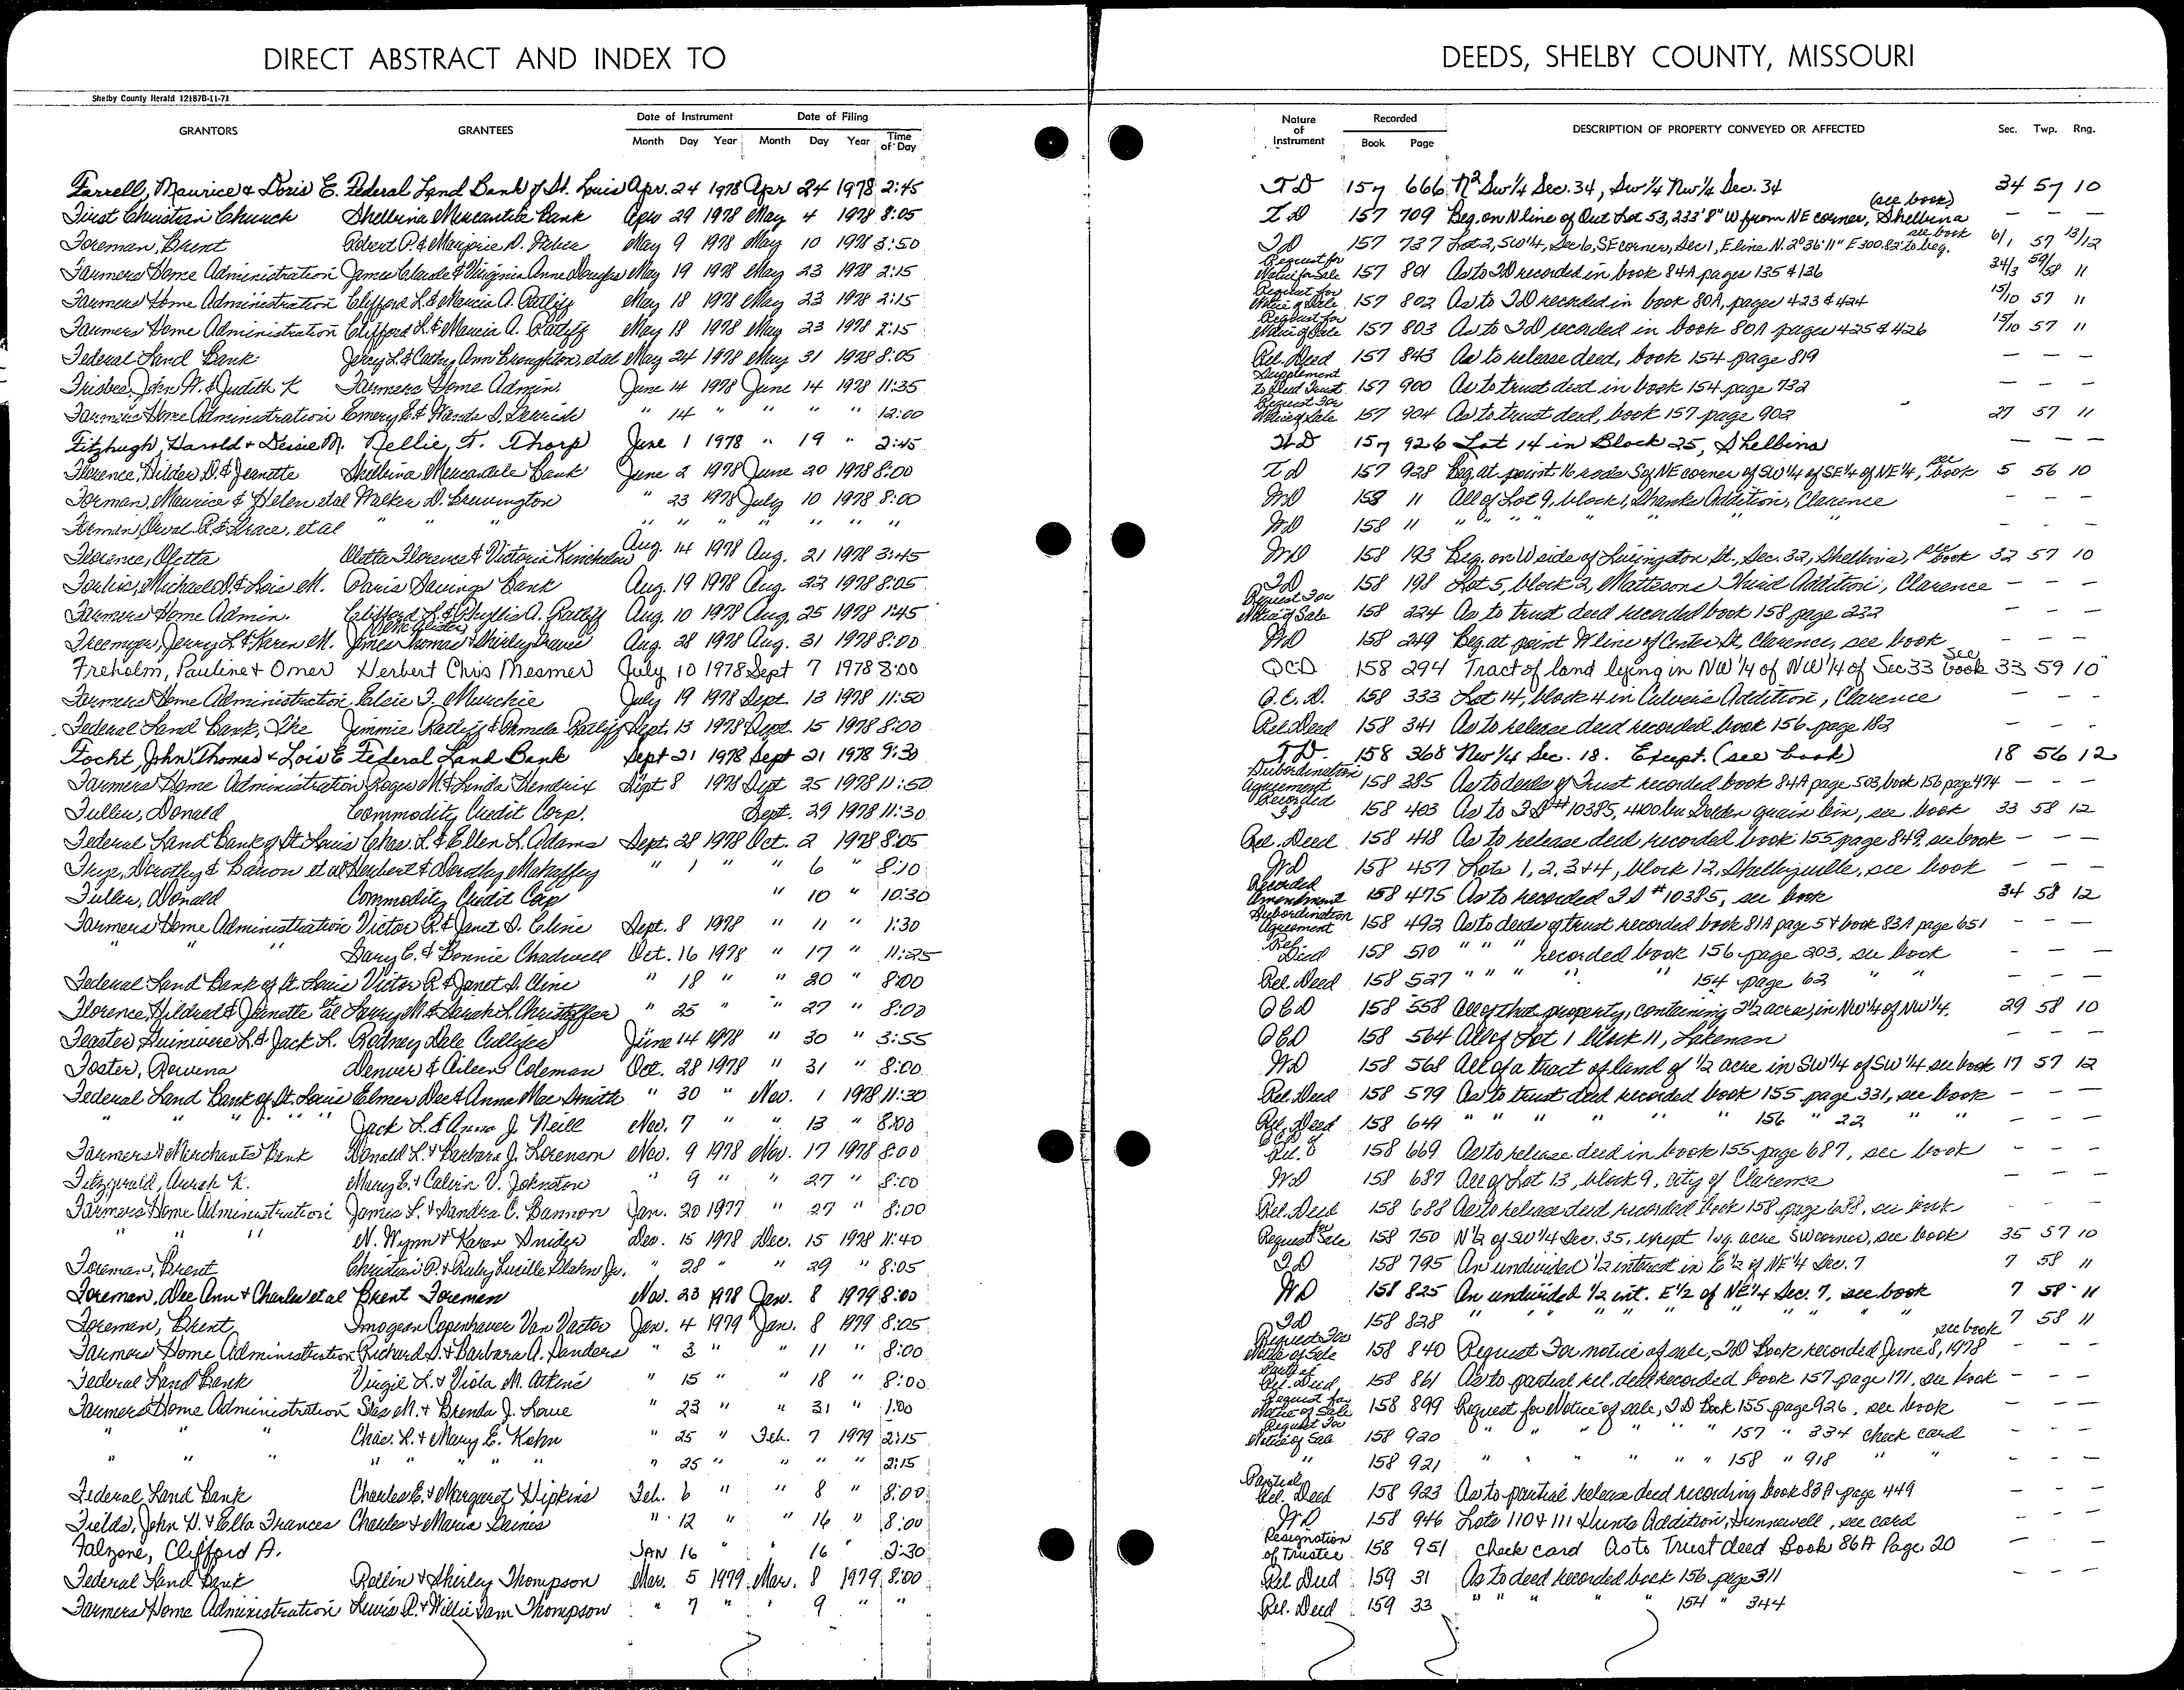 DIRECT ABSTRACT AND INDEX TO
DEEDS, SHELBY COUNTY, MISSOURI
Shelby County Herald 12187B-11-71
GRANTORS GRANTEES Date of Instrument Date of Filing Nature of Instrument Recorded DESCRIPTION OF PROPERTY CONVEYED OR AFFECTED Sec. Twp. Rng.
Month Day Year Month Day Year Time of Day Book Page
Farrell, Maurice & Doris E. Federal Land Bank of St. Louis Apr. 24 1978 Apr 24 1978 2:45 TD 157 666 N2 SW1/4 Sec. 34, SW 1/4 NW 1/4 Sec. 34 34 57 10
First Christian Church Shelbina Mercantile Bank Apr 29 1978 May 4 1978 8:05 TD 157 709 Beg. on N line of Out Lot 53, 233'8" W from NE corner, Shelbina (see book) — — —
Foreman, Brent Robert P. & Marjorie D. May 9 1978 May 10 1978 3:50 TD 157 737 Lot 2, SW1/4, Sec 6, SE corner, Sec 1, E line N. 2°36'11" E 300.83' to beg. see book 6/1 57 13/12
Farmers Home Administration James Claude & Virginia Anne Douglas May 19 1978 May 23 1978 2:15 Request for Notice for Sale 157 801 As to TD recorded in book 84A pages 135 & 136 34/3 59/58 11
Farmers Home Administration Clifford L. & Marcia A. Ratliff May 18 1978 May 23 1978 2:15 Request for Notice of Sale 157 802 As to TD recorded in book 80A, pages 423 & 424 15/10 57 11
Farmers Home Administration Clifford L. & Marcia A. Ratliff May 18 1978 May 23 1978 2:15 Request for Notice of Sale 157 803 As to TD recorded in book 80A pages 425 & 426 15/10 57 11
Federal Land Bank Jerry L. & Cathy Ann Broughton, et al May 24 1978 May 31 1978 8:05 Rel. Deed 157 843 As to release deed, book 154 page 819 — — —
Frisbee, John W. & Judith K Farmers Home Admin. June 14 1978 June 14 1978 11:35 Supplement to Deed Trust 157 900 As to trust deed in book 154 page 732 — — —
Farmers Home Administration Emery E. & Wanda I. " 14 " " " " 12:00 Request For Notice of Sale 157 904 As to trust deed, book 157 page 902 27 57 11
Fitzhugh, Harold & Dessie M. Nellie F. Thorp June 1 1978 " 19 " 2:45 WD 157 926 Lot 14 in Block 25, Shelbina — — —
Florence, Hilder D. & Jeanette Shelbina Mercantile Bank June 2 1978 June 20 1978 8:00 TD 157 928 Beg. at point 16 rods S of NE corner of SW 1/4 of SE 1/4 of NE 1/4, see book 5 56 10
Forman, Maurice & Helen et al Walker D. Brewington " 23 1978 July 10 1978 8:00 WD 158 11 All of Lot 9, block 1, Shanks Addition, Clarence — — —
Forman, Orval R. & Grace, et al " " " " " " " " " WD 158 11 " " " " " " " — — —
Florence, Oletta Oletta Florence & Victoria Kincheloe Aug. 14 1978 Aug. 21 1978 3:45 WD 158 193 Beg. on W side of Livingston St., Sec. 32, Shelbina, see book 32 57 10
Michael D. & Lois M. Paris Savings Bank Aug. 19 1978 Aug. 22 1978 8:05 TD 158 198 Lot 5, block 2, Mattesons Third Addition, Clarence — — —
Farmers Home Admin. Clifford L. & Phyllis A. Ratliff Aug. 10 1978 Aug. 25 1978 1:45 Request For Notice of Sale 158 224 As to trust deed recorded book 158 page 222 — — —
Freemyer, Jerry L. & Karen M. James Thomas & Shirley Aug. 28 1978 Aug. 31 1978 8:00 WD 158 249 Beg. at point W line of Center St, Clarence, see book — — —
Freholm, Pauline & Omer Herbert Chris Mesmer July 10 1978 Sept 7 1978 8:00 QCD 158 294 Tract of land lying in NW 1/4 of NW 1/4 of Sec 33 See book 33 59 10
Farmers Home Administration Elsie F. Murchie July 19 1978 Sept. 13 1978 11:50 Q.C.D. 158 333 Lot 14, block 4 in Culvers Addition, Clarence — — —
Federal Land Bank, The Jimmie Ratliff & Pamela Ratliff Sept. 13 1978 Sept. 15 1978 8:00 Rel. Deed 158 341 As to release deed recorded book 156 page 182 — — —
Focht, John Thomas & Lois E Federal Land Bank Sept 21 1978 Sept 21 1978 9:30 TD. 158 368 NW 1/4 Sec. 18. Except. (see book) 18 56 12
Farmers Home Administration Roger M. & Linda Hendrix Sept 8 1978 Sept 25 1978 11:50 Subordination Agreement 158 385 As to deeds of Trust recorded book 84A page 503, book 156 page 474 — — —
Fuller, Donald Commodity Credit Corp. Sept. 29 1978 11:30 Recorded TD 158 403 As to TD #10385, 4400 bu Golden grain bin, see book 33 58 12
Federal Land Bank of St. Louis Chas. L. & Ellen L. Addams Sept. 28 1978 Oct. 2 1978 8:05 Rel. Deed 158 418 As to release deed recorded book 155 page 849, see book — — —
Frye, Dorothy & Barron et al Herbert & Dorothy Mahaffey " 1 " " 6 " 8:10 WD 158 457 Lots 1, 2, 3 & 4, block 12, Shelbyville, see book — — —
Fuller, Donald Commodity Credit Corp " 10 " 10:30 Recorded Amendment 158 475 As to recorded TD #10385, see book 34 58 12
Farmers Home Administration Victor R. & Janet D. Cline Sept. 8 1978 " 11 " 1:30 Subordination Agreement 158 492 As to deeds of trust recorded book 81A page 5 & book 83A page 651 — — —
" " " Gary C. & Bonnie Chadwell Oct. 16 1978 " 17 " 11:25 Rel. Deed 158 510 " " " recorded book 156 page 203, see book — — —
Federal Land Bank of St. Louis Victor R. & Janet D. Cline " 18 " " 20 " 8:00 Rel. Deed 158 527 " " " " " 154 page 62 " " — — —
Florence, Hildred & Jeanette et al Larry M. & Sarah L. Christoffer " 25 " " 27 " 8:00 QCD 158 558 All of that property, containing 2 1/2 acres, in NW 1/4 of NW 1/4. 29 58 10
Feaster, Guinivere L. & Jack L. Rodney Dale Culliver June 14 1978 " 30 " 3:55 QCD 158 564 All of Lot 1 block 11, Lakenan — — —
Foster, Rowena Denver & Aileen Coleman Oct. 28 1978 " 31 " 8:00 WD 158 568 All of a tract of land of 1/2 acre in SW 1/4 of SW 1/4 see book 17 57 12
Federal Land Bank of St. Louis Elmer Dee & Anna Mae Smith " 30 " Nov. 1 1978 11:30 Rel. Deed 158 579 As to trust deed recorded book 155 page 331, see book — — —
" " " " " Jack L. & Anna J. Neill Nov. 7 " " 13 " 8:00 Rel. Deed 158 644 " " " " " " 156 " 22 " " — — —
Farmers & Merchants Bank Donald L. & Barbara J. Lorenson Nov. 9 1978 Nov. 17 1978 8:00 158 669 As to release deed in book 155 page 687, see book — — —
Fitzgerald, K. Mary E. & Calvin V. Johnston " 9 " " 27 " 8:00 WD 158 687 All of Lot 13, block 9, city of Clarence — — —
Farmers Home Administration James L. & Sandra C. Bannon Jan. 20 1977 " 27 " 8:00 Rel. Deed 158 688 As to release deed recorded book 158 page 688, see book — — —
" " " N. Wynn & Karen Snider Dec. 15 1978 Dec. 15 1978 11:40 Request for Sale 158 750 N 1/2 of SW 1/4 Sec. 35, except 1 sq. acre SW corner, see book 35 57 10
Foreman, Brent Christian P. & Ruby Lucille Jr. " 28 " " 29 " 8:05 TD 158 795 An undivided 1/2 interest in E 1/2 of NE 1/4 Sec. 7 7 58 11
Foreman, Dee Ann & Charles et al Brent Foreman Nov. 23 1978 Jan. 8 1979 8:00 WD 158 825 An undivided 1/2 int. E 1/2 of NE 1/4 Sec. 7, see book 7 58 11
Foreman, Brent Imogean Copenhaver Van Vactor Jan. 4 1979 Jan. 8 1979 8:05 TD 158 828 " " " " " " " " " 7 58 11
Farmers Home Administration Richard D. & Barbara A. Sanders " 3 " " 11 " 8:00 Request For Notice of Sale 158 840 Request For notice of sale, TD Book recorded June 8, 1978 see book — — —
Federal Land Bank Virgil L. & Viola M. Atkins " 15 " " 18 " 8:00 Partial Rel. Deed 158 861 As to partial rel. deed recorded book 157 page 171, see book — — —
Farmers Home Administration M. & Brenda J. Lowe " 23 " " 31 " 1:00 Request for Notice of Sale 158 899 Request for Notice of sale, TD Book 155 page 926, see book — — —
" " " Chas. L. & Mary E. Kohn " 25 " Feb. 7 1979 2:15 Request For Notice of Sale 158 920 " " " " " " 157 " 334 check card — — —
" " " " " " " " 25 " " " " 2:15 " 158 921 " " " " " 158 " 918 " " — — —
Federal Land Bank Charles E. & Margaret Hipkins Feb. 6 " " 8 " 8:00 Partial Rel. Deed 158 923 As to partial release deed recording book 83A page 449 — — —
Fields, John W. & Ella Frances Charles & Maria Gaines " 12 " " 16 " 8:00 WD 158 946 Lots 110 & 111 Hunts Addition, Hunnewell, see card — — —
Falzone, Clifford A. JAN 16 " " 16 " 2:30 Resignation of trustee 158 951 check card As to Trust deed Book 86A Page 20 — — —
Federal Land Bank Rollin & Shirley Thompson Mar. 5 1979 Mar. 8 1979 8:00 Rel Deed 159 31 As to deed recorded book 156 page 311 — — —
Farmers Home Administration Lewis R. & Willie Sam Thompson " 7 " " 9 " " Rel. Deed 159 33 " " " " " 154 " 344